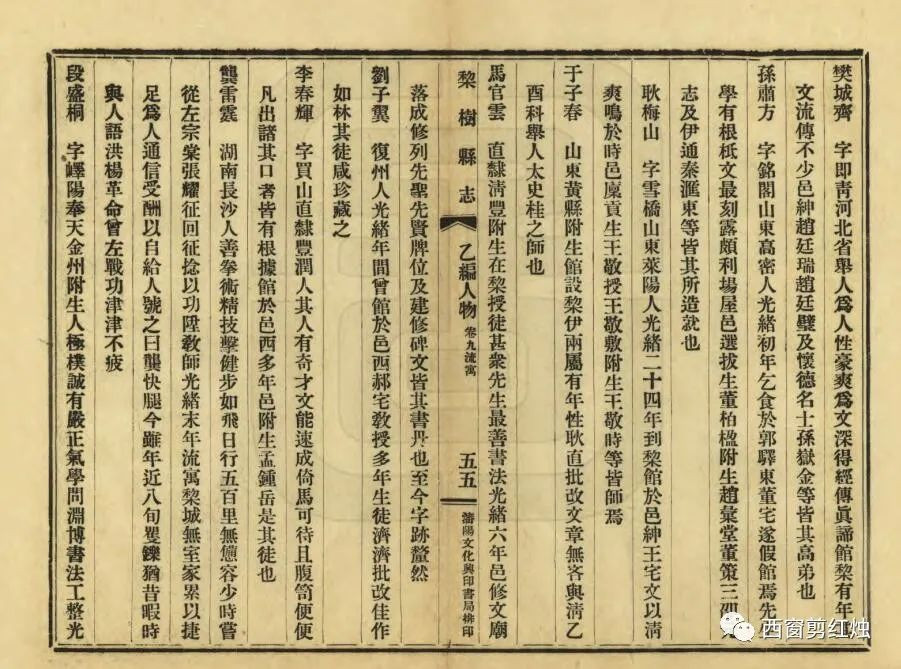 樊城齊　字卽靑河北省舉人爲人性豪爽爲文深得經傳眞諦館黎有年
文流傳不少邑紳趙廷瑞趙廷璧及懷德名士孫嶽金等皆其高弟也
孫肅方　字銘閣山東高密人光緒初年乞食於郭驛東董宅遂假館焉先
學有根柢文最刻露頗利場屋邑選拔生董柏楹附生趙彙堂董策三
志及伊通秦滙東等皆其所造就也
耿梅山　字雪橋山東萊陽人光緒二十四年到黎館於邑紳王宅文以淸
爽鳴於時邑廩貢生王敬授王敬敷附生王敬時等皆師焉
于子春　山東黃縣附生館設黎伊兩屬有年性耿直批改文章無吝與淸乙
酉科舉人太史桂之師也
馬官雲　直隸淸豐附生在黎授徒甚衆先生最善書法光緒六年邑修文廟
梨樹縣志
乙編人物 卷九流寓
五五
瀋陽文化興印書局排印
落成修列先聖先賢牌位及建修碑文皆其書丹也至今字跡釐然
劉子翼　復州人光緒年間曾館於邑西郝宅敎授多年生徒濟濟批改佳作
如林其徒咸珍藏之
李春輝　字買山直隸豐潤人其人有奇才文能速成倚馬可待且腹笥便便
凡出諸其口者皆有根據館於邑西多年邑附生孟鍾岳是其徒也
龔雷霆　湖南長沙人善拳術精技擊健步如飛日行五百里無憊容少時嘗
從左宗棠張耀征回征捻以功陞敎師光緒末年流寓黎城無室家累以捷
足爲人通信受酬以自給人號之曰龔快腿今雖年近八旬矍鑠猶昔暇時
與人語洪楊革命曾左戰功津津不疲
段盛桐　字嶧陽奉天金州附生人極樸誠有嚴正氣學問淵博書法工整光
西窗剪红烛